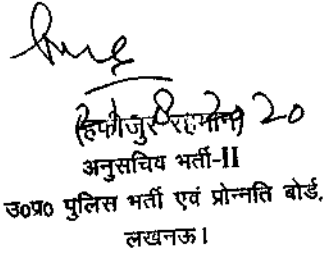 (हिफ़ाजुर रहमान)
अनुसचिव भर्ती-II
उ०प्र० पुलिस भर्ती एवं प्रोन्नति बोर्ड,
लखनऊ।